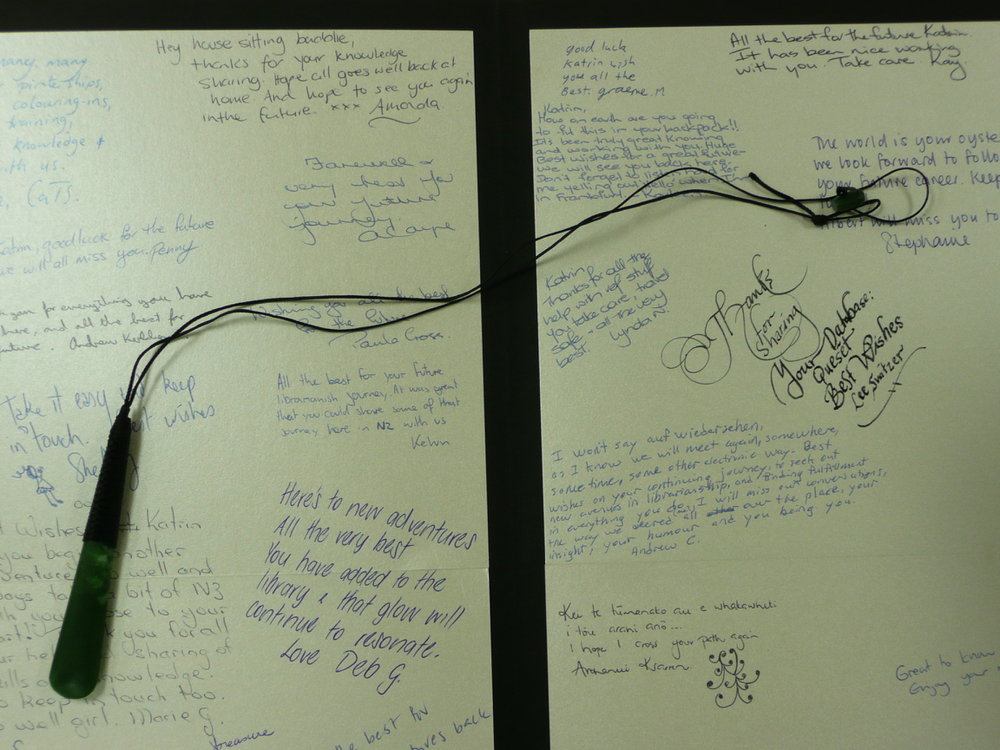 many, many
colouring-ins,
training,
knowledge +
th us.
CaTS.
Hey house sitting buddie,
thanks for your knowledge
sharing. Hope all goes well back at
home. And hope to see you again
in the future. xxx Amanda.
Farewell &
very best for
your future
journey.
Katrin, good luck for the future
we will all miss you. Penny
you for everything you have
here, and all the best for
future. Andrew
Wishing you all the best
for the future
Paula Cross.
Take it easy and keep
in touch. Best wishes
All the best for your future
librarianish journey. It was great
that you could share some of that
journey here in NZ with us
Kelvin
Wishes Katrin
you begin another
adventure well and
always bit of NZ
with you to your
you for all
your help sharing of
skills knowledge.
keep in touch too.
well girl. Marie G.
Here's to new adventures
All the very best
You have added to the
library & that glow will
continue to resonate.
Love Deb G.
treasure
the best for
back
good luck
Katrin wish
you all the
Best. graeme. M
All the best for the future Katrin.
It has been nice working
with you. Take care Kay
Katrin,
How on earth are you going
to fit this in your backpack!!
It's been truly great knowing
and working with you. Huge
Best wishes for a great future
we will see you back here.
Don't forget to listen hard for
me yelling out hello when
in Frankfurt
The world is your oyster
we look forward to follo
your future career. Keep
Albert will miss you to
Stephanie
Katrin
Thanks for all the
help with ref stuff
you take care, travel
safe - all the very
best. Lynda N.
Thanks
for
sharing
Your Database:
Quest
Best Wishes
Lee Switzer
xx
I won't say auf wiedersehen,
as I know we will meet again, somewhere,
some time, some other electronic way. Best
wishes on your continuing journey, to seek out
new avenues in librarianship, and finding fulfillment
in everything you do. I will miss our conversations,
the way we veered all over the place, your
insight, your humour and you being you.
Andrew C.
Kei te tūmanako au e whakawhiti
i tōu arani anō...
I hope I cross your path again
Great to know
Enjoy your